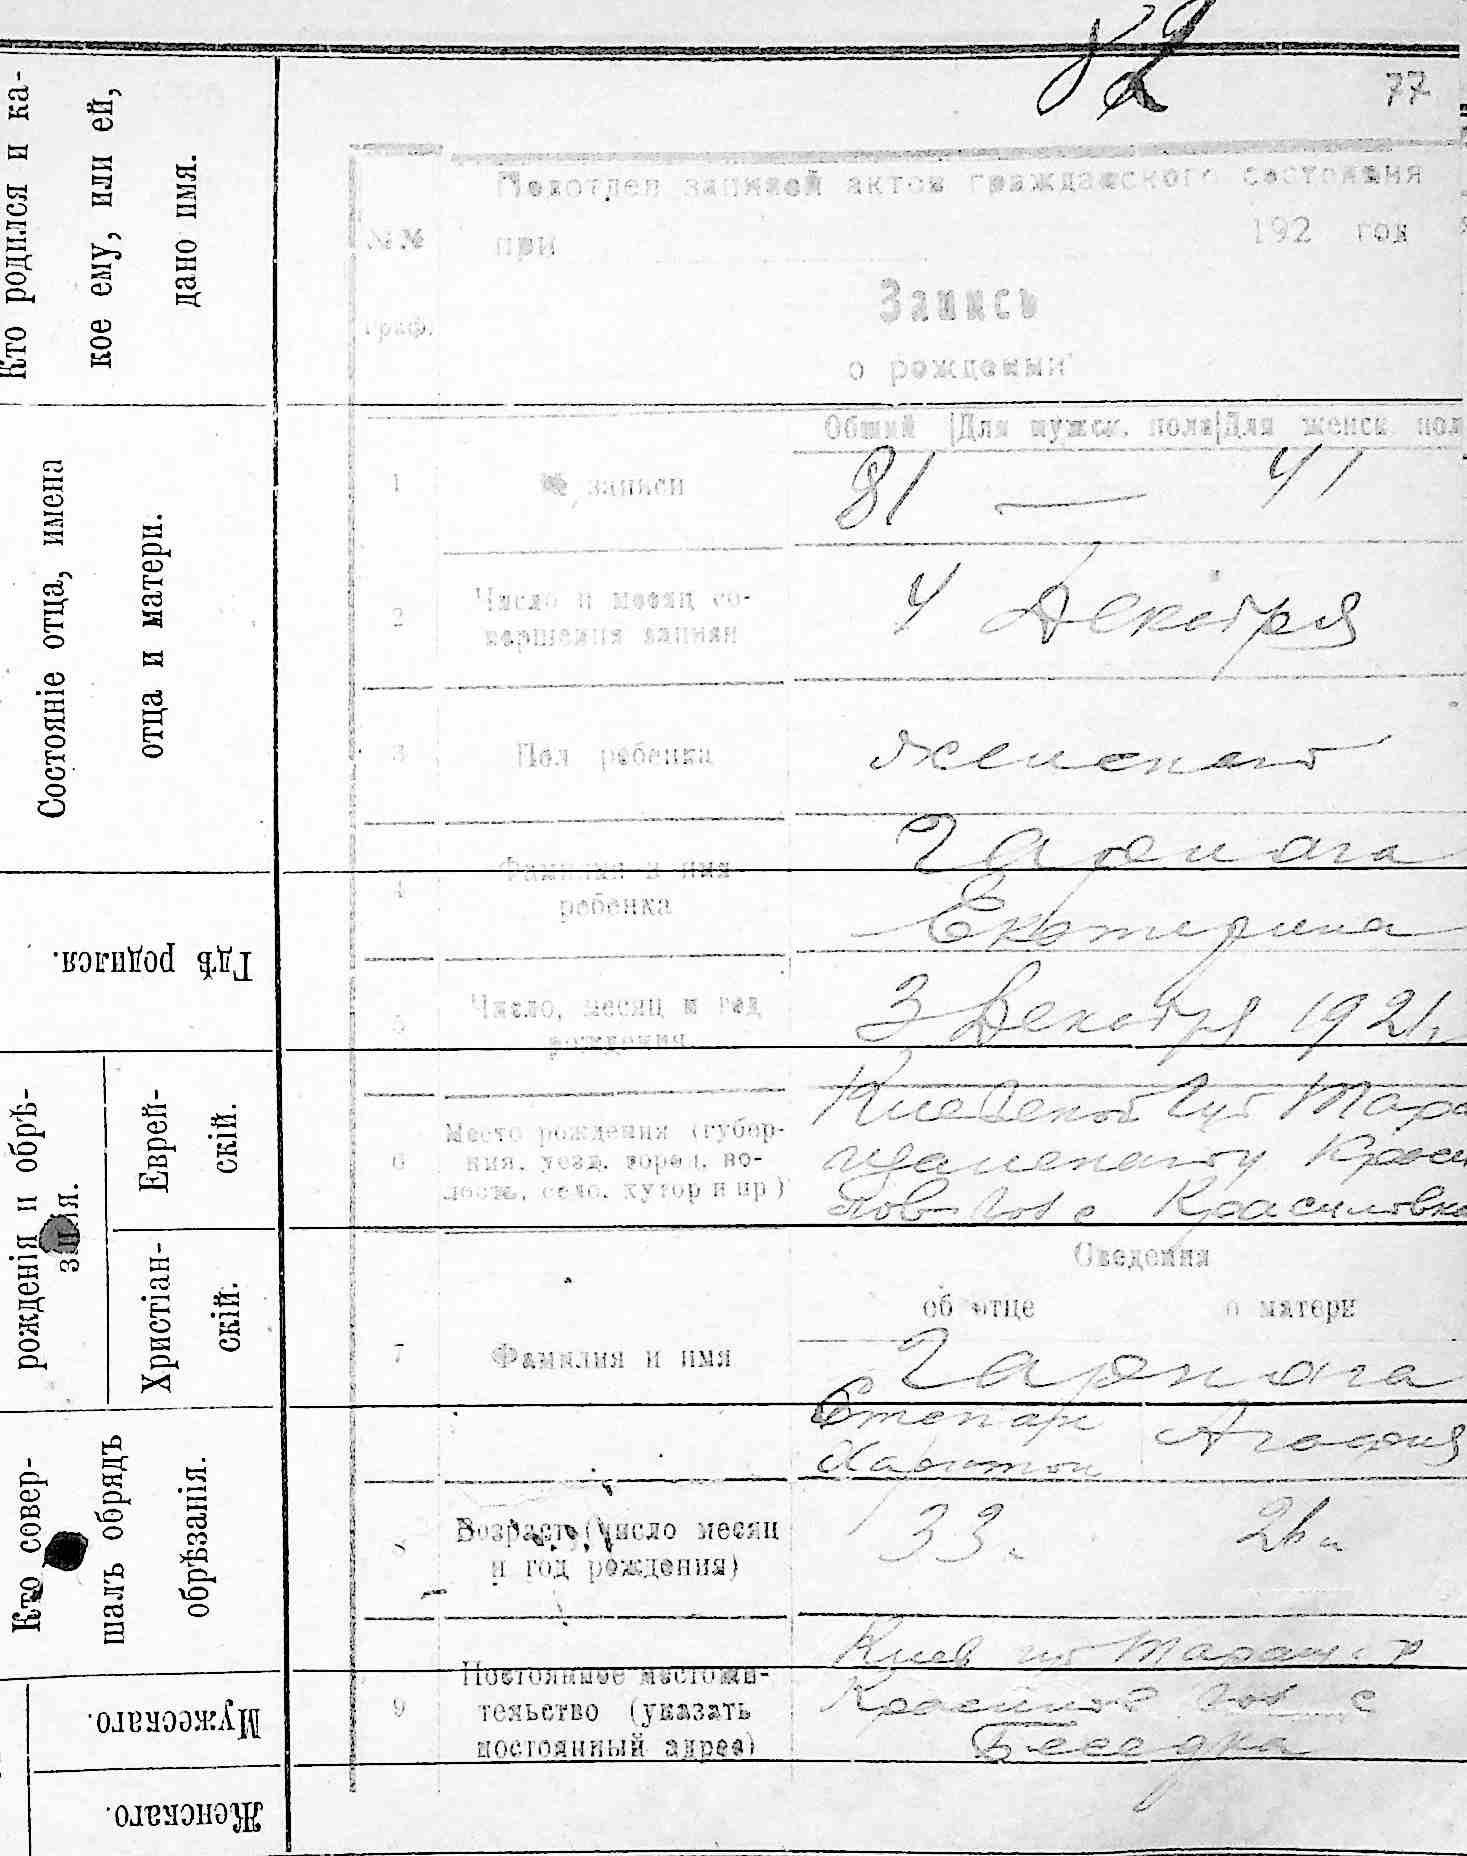 82
77
Кто родился и ка-
кое ему, или ей,
дано имя.
Состояніе отца, имена
отца и матери.
Гдѣ родился.
рожденія и обрѣ-
занія.
Еврей-
скій.
Христіан-
скій.
Кто совер-
шалъ обрядъ
обрѣзанія.
Мужескаго.
Женскаго.
Подотдел записей актов гражданского состояния
№№ при 192 год
граф.
Запись
о рождении
Общий Для мужск. пола Для женск. пол
1 № записи 81 — 41
2 Число и месяц со-
вершения записи
4 Декабря
3 Пол ребенка женского
4 Фамилия и имя
ребенка
Екатерина
5 Число, месяц и год
рождения
3 Декабря 1921г
6 Место рождения (губер-
ния, уезд, город, во-
лость, село, хутор и пр)
Киевской губ Тара
щанского у Краси
лов вол с Красиловка
Сведения
об отце о матери
7 Фамилия и имя
Степан Агафия
Харитон
8 Возраст (число месяц
и год рождения)
33
9 Постоянное местожи-
тельство (указать
постоянный адрес)
Киев губ Таращ. у
Красилов вол с
Беседка